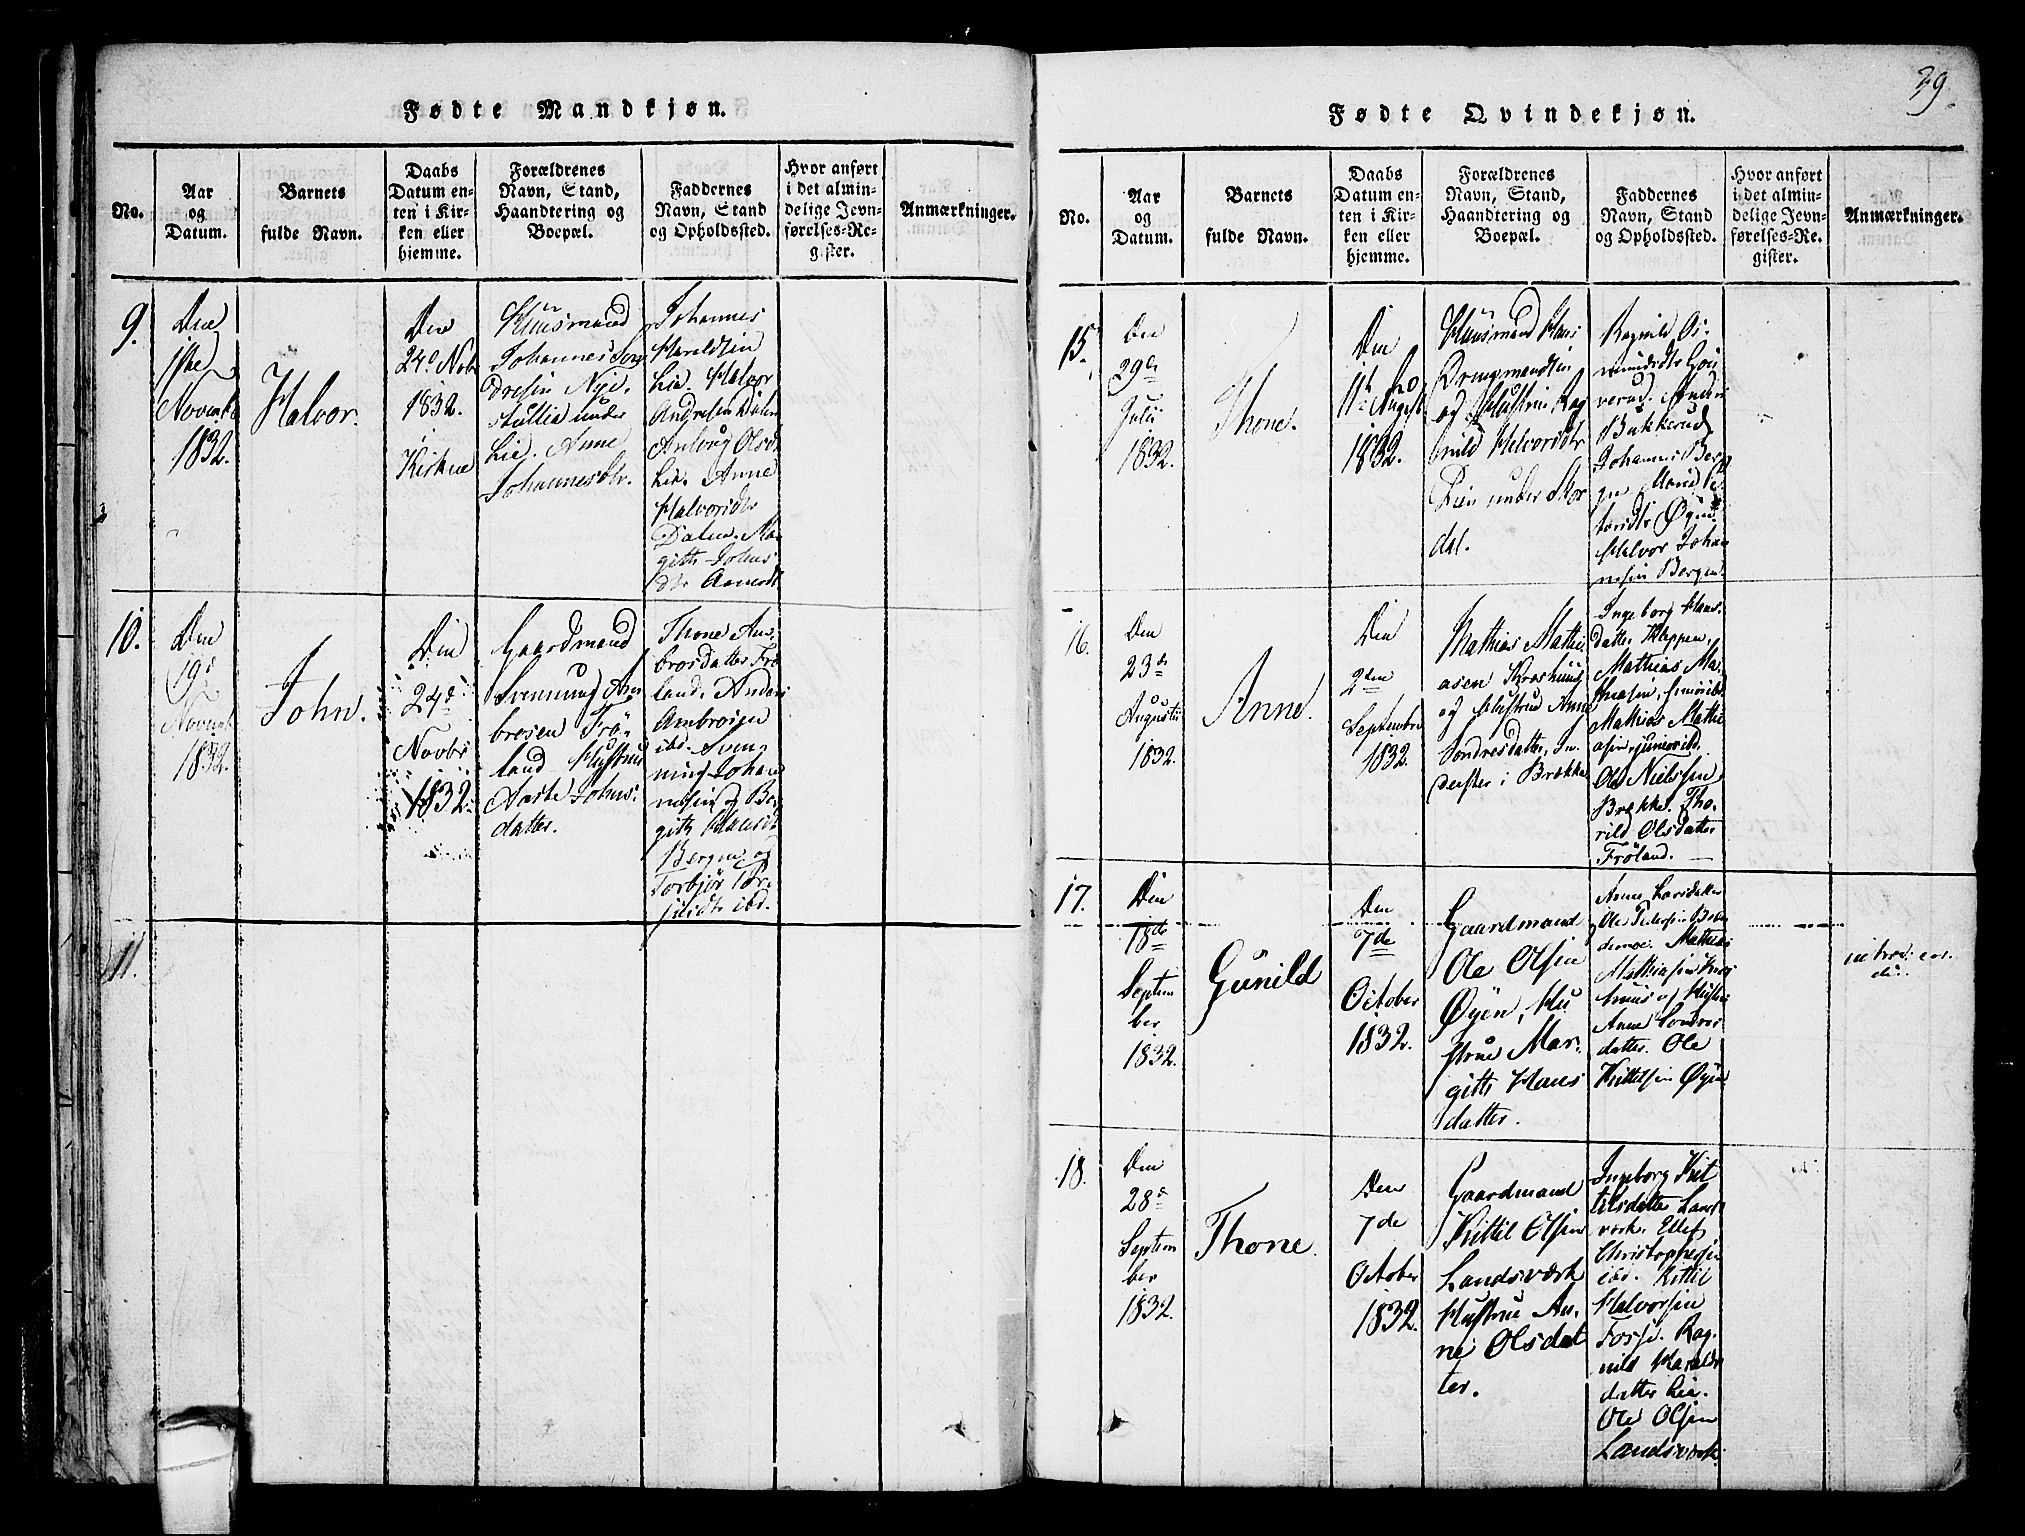 Fødte Mandkjøn.
No.
Aar
og
Datum.
Barnets
fulde Navn.
Daabs
Datum en-
ten i Kir-
ken eller
hjemme.
Forældrenes
Navn, Stand,
Haandtering og
Boepæl.
Faddernes
Navn, Stand
og Opholdssted.
Hvor anført
i det almin-
delige Jevn-
førelses-Re-
gister.
Anmærkninger.
9.
Den
1ste
Novemb
1832.
Halvor.
Den
24d Novb
1832.
i
Kirken
Huusmand
Johannes Son
dresen Nye-
stullia under
Lie. Anne
Johannesdtr.
Johannes
Haroldsen
Lie. Halvor
Andresen Dalen
Anborg Olsdtr
Lie. Anne
Halvorsdtr
Dalen. Mar
githe Johns
dtr
10.
Den
19d
Novemb
1832.
John.
Den
24d
Novbr
1832.
Gaardmand
Svenung Am
brosen Frö-
land Hustrue
Aaste Johns-
datter.
Thone Am-
brosdatter Frö
land. Anders
Ambrosen
ibd. Sven-
nung Johan
nesen og Ber
githe Hansdt
Bergen og
Torbjør
ibd.
11.
29.
Fødte Qvindekjøn.
No.
Aar
og
Datum.
Barnets
fulde Navn.
Daabs
Datum en-
ten i Kir-
ken eller
hjemme.
Forældrenes
Navn, Stand,
Haandtering og
Boepæl.
Faddernes
Navn, Stand
og Opholdssted.
Hvor anført
i det almin-
delige Jevn-
førelses-Re-
gister.
Anmærkninger.
15.
Den
29de
Julii
1832.
Thone.
Den
11te
August
1832.
Huusmand Hans
og Hustrue Rag
nild Halvorsdtr
under Mor
dal.
Ragnild Os-
mundsdtr
Anders
Bukkerud
Johannes Ber
gen
Halvor Johan
nesen Bergen.
16.
Den
23de
Augustii
1832.
Anne.
Den
2den
Septembr
1832.
Mathias Mathi
asen Kroshuus
og Hustrue Anne
Sondresdatter, In
derster i Brække
Ingeborg Hans-
datter Klappen,
Mathias Ma-
thiasen,
Mathias Mathi
asen junior ibd.
Ole Nielssen
Brække. Tho-
rild Olsdatter
Fröland.
17.
Den
18de
Septem
ber
1832.
Gunild
Den
7de
October
1832.
Gaardmand
Ole Olsen
Øyen, Hu
strue Mar-
githe Hans
datter.
Anne Larsdatter
Ole Pedersen
Mathias
Mathiasen Kros
huus og Hustru
Anne Sondres
datter. Ole
Kittelsen Øyen
introd: eod.
d:
18.
Den
28d
Septem
ber
1832.
Thone.
Den
7de
October
1832.
Gaardmand
Kittil Olsen
Landsværk
Hustrue An-
ne Olsdat
ter.
Ingeborg Kit
tilsdatter Lands
værk. Ellef
Christophersen
ibd. Kittil
Halvorsen
Forse. Rag-
nild Haralds
datter Lie.
Ole Olsen
Landsværk.